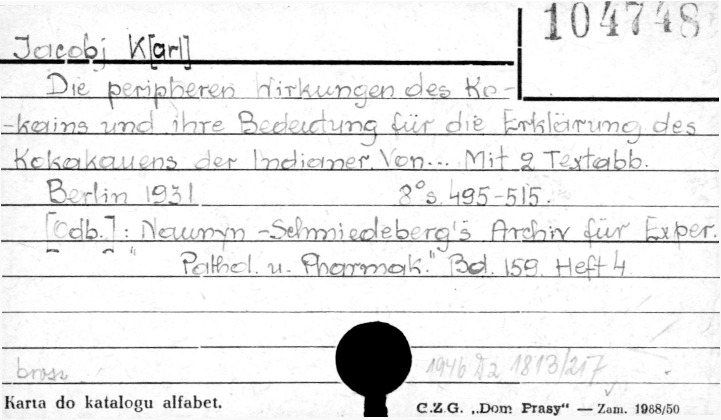 104748
Jacobj K[arl]
Die peripheren Wirkungen des Ko-
-kains und ihre Bedeutung für die Erklärung des
Kokakauens der Indianer. Von... Mit 2 Textabb.
Berlin 1931 8° s. 495-515.
[Odb.]: "Naunyn-Schmiedeberg's Archiv für Exper.
Pathol. u. Pharmak." Bd. 159. Heft 4
brosz. 1946 1813/217
Karta do katalogu alfabet.
C.Z.G. „Dom Prasy“ — Zam. 1968/50